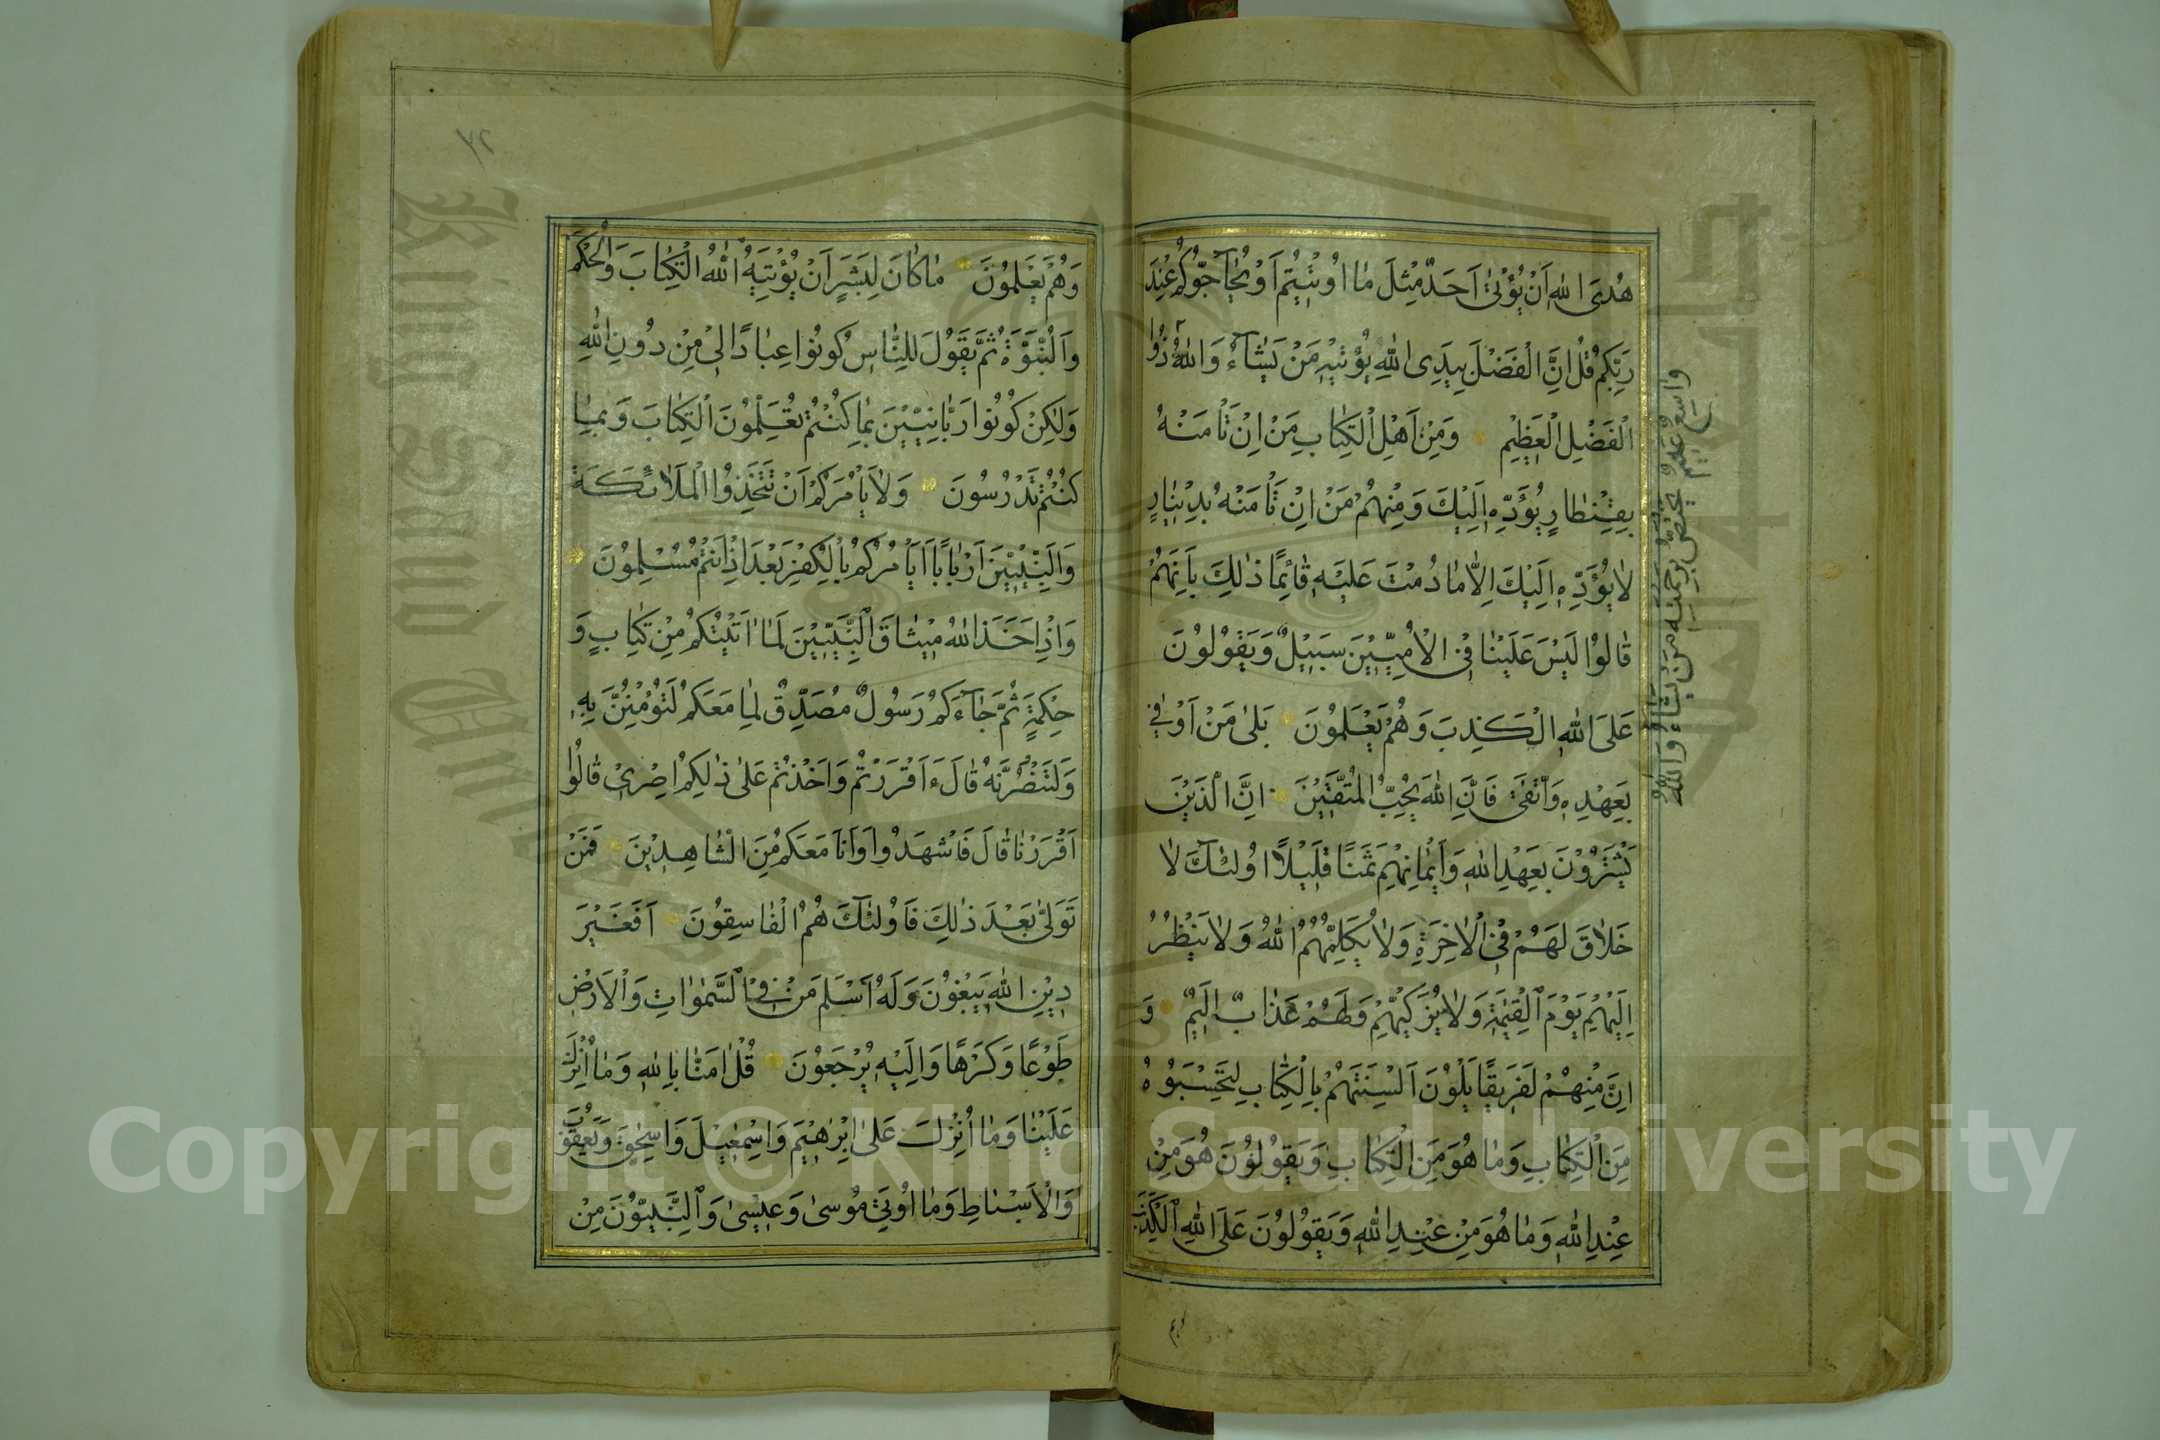 هُدَى اللهِ اَنْ يُؤْتىٰ اَحَدٌ مِثْلَ مٰا اُوتٖيتُمْ اَوْ يُحٰآجُّوكُمْ عِنْدَ
رَبِّكُمْ قُلْ اِنَّ الْفَضْلَ بِيَدِى اللهِ يُؤْتٖيهِ مَنْ يَشٰآءُ وَاللهُ ذُوا
الْفَضْلِ الْعَظٖيمِ وَمِنْ اَهْلِ الْكِتٰابِ مَنْ اِنْ تَأْمَنْهُ
بِقِنْطٰارٍ يُؤَدِّهِ اِلَيْكَ وَمِنْهُمْ مَنْ اِنْ تَأْمَنْهُ بِدٖينٰارٍ
لٰا يُؤَدِّهِ اِلَيْكَ اِلّٰا مٰا دُمْتَ عَلَيْهِ قٰائِمًا ذٰلِكَ بِاَنَّهُمْ
قٰالُوا لَيْسَ عَلَيْنٰا فِى الْاُمِّيّٖينَ سَبٖيلٌ وَيَقُولُونَ
عَلَى اللهِ الْكَذِبَ وَهُمْ يَعْلَمُونَ بَلىٰ مَنْ اَوْفىٰ
بِعَهْدِهِ وَاتَّقىٰ فَاِنَّ اللهَ يُحِبُّ الْمُتَّقٖينَ اِنَّ الَّذٖينَ
يَشْتَرُونَ بِعَهْدِ اللهِ وَاَيْمٰانِهِمْ ثَمَنًا قَلٖيلًا اُولٰئِكَ لٰا
خَلٰاقَ لَهُمْ فِى الْاٰخِرَةِ وَلٰا يُكَلِّمُهُمُ اللهُ وَلٰا يَنْظُرُ
اِلَيْهِمْ يَوْمَ الْقِيٰمَةِ وَلٰا يُزَكّٖيهِمْ وَلَهُمْ عَذٰابٌ اَلٖيمٌ وَ
اِنَّ مِنْهُمْ لَفَرٖيقًا يَلْوُنَ اَلْسِنَتَهُمْ بِالْكِتٰابِ لِتَحْسَبُوهُ
مِنَ الْكِتٰابِ وَمٰا هُوَ مِنَ الْكِتٰابِ وَيَقُولُونَ هُوَ مِنْ
عِنْدِ اللهِ وَمٰا هُوَ مِنْ عِنْدِ اللهِ وَيَقُولُونَ عَلَى اللهِ الْكَذِبَ
وٰاسِعٌ عَلٖيمٌ يَخْتَصُّ بِرَحْمَتِهِ مَنْ يَشٰآءُ وَاللهُ
وَهُمْ يَعْلَمُونَ مٰا كٰانَ لِبَشَرٍ اَنْ يُؤْتِيَهُ اللهُ الْكِتٰابَ وَالْحُكْمَ
وَالنُّبُوَّةَ ثُمَّ يَقُولَ لِلنّٰاسِ كُونُوا عِبٰادًا لٖى مِنْ دُونِ اللهِ
وَلٰكِنْ كُونُوا رَبّٰانِيّٖينَ بِمٰا كُنْتُمْ تُعَلِّمُونَ الْكِتٰابَ وَبِمٰا
كُنْتُمْ تَدْرُسُونَ وَلٰا يَأْمُرَكُمْ اَنْ تَتَّخِذُوا الْمَلٰائِكَةَ
وَالنَّبِيّٖينَ اَرْبٰابًا اَيَأْمُرُكُمْ بِالْكُفْرِ بَعْدَ اِذْ اَنْتُمْ مُسْلِمُونَ
وَاِذْ اَخَذَ اللهُ مٖيثٰاقَ النَّبِيّٖينَ لَمٰا اٰتَيْتُكُمْ مِنْ كِتٰابٍ وَ
حِكْمَةٍ ثُمَّ جٰآءَكُمْ رَسُولٌ مُصَدِّقٌ لِمٰا مَعَكُمْ لَتُؤْمِنُنَّ بِهِ
وَلَتَنْصُرُنَّهُ قٰالَ ءَاَقْرَرْتُمْ وَاَخَذْتُمْ عَلىٰ ذٰلِكُمْ اِصْرٖى قٰالُوا
اَقْرَرْنٰا قٰالَ فَاشْهَدُوا وَاَنَا مَعَكُمْ مِنَ الشّٰاهِدٖينَ فَمَنْ
تَوَلّىٰ بَعْدَ ذٰلِكَ فَاُولٰئِكَ هُمُ الْفٰاسِقُونَ اَفَغَيْرَ
دٖينِ اللهِ يَبْغُونَ وَلَهُ اَسْلَمَ مَنْ فِى السَّمٰوٰاتِ وَالْاَرْضِ
طَوْعًا وَكَرْهًا وَاِلَيْهِ يُرْجَعُونَ قُلْ اٰمَنّٰا بِاللهِ وَمٰا اُنْزِلَ
عَلَيْنٰا وَمٰا اُنْزِلَ عَلىٰ اِبْرٰهٖيمَ وَاِسْمٰعٖيلَ وَاِسْحٰقَ وَيَعْقُوبَ
وَالْاَسْبٰاطِ وَمٰا اُوتِىَ مُوسىٰ وَعٖيسىٰ وَالنَّبِيُّونَ مِنْ
Copyright © King Saud University